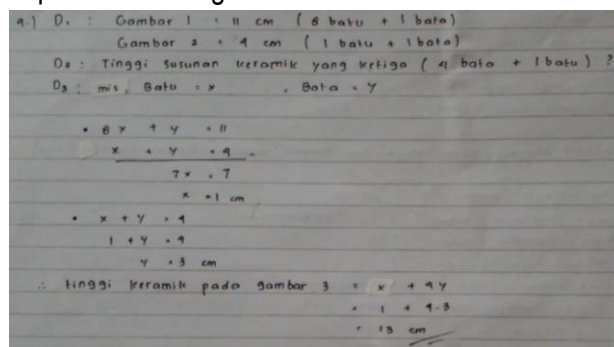 4.) D₁ : Gambar 1 = 11 cm ( 8 batu + 1 bata)
Gambar 2 = 4 cm ( 1 batu + 1 bata)
D₂ : Tinggi susunan keramik yang ketiga ( 4 bata + 1 batu ) ?
D₃ : mis, Batu = x , Bata = y
• 8x + y = 11
x + y = 4 -
7x = 7
x = 1 cm
• x + y = 4
1 + y = 4
y = 3 cm
∴ tinggi keramik pada gambar 3 = x + 4y
= 1 + 4.3
= 13 cm